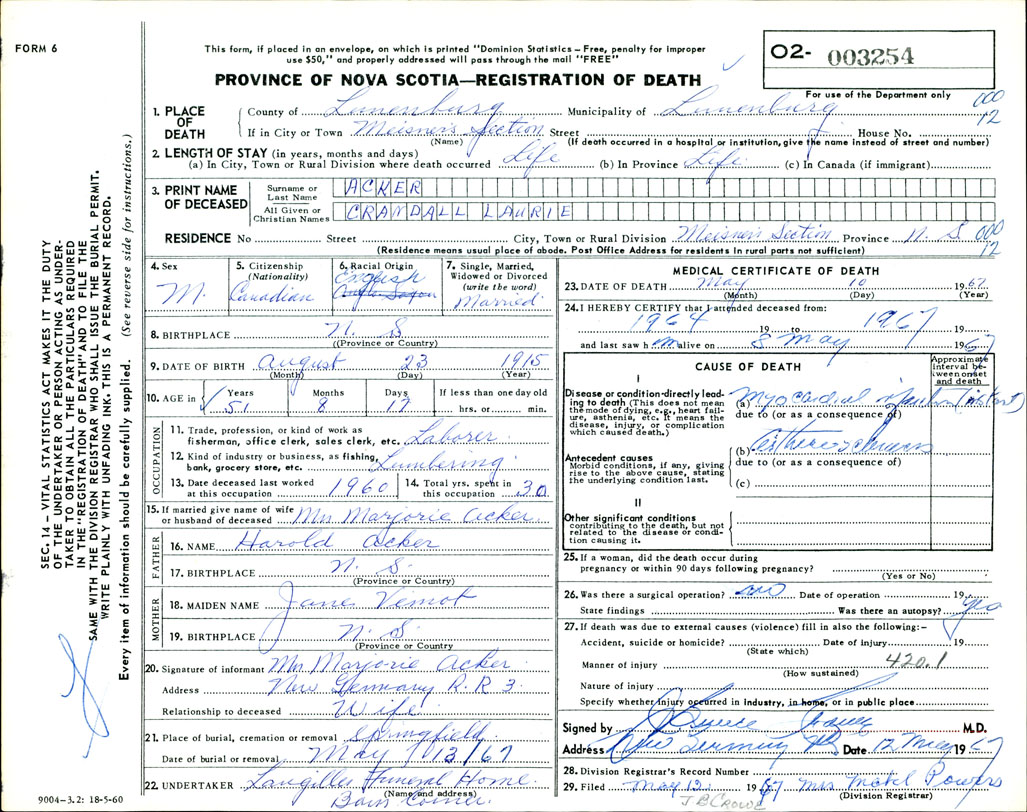 FORM 6
This form, if placed in an envelope, on which is printed "Dominion Statistics – Free, penalty for improper
use $50," and properly addressed will pass through the mail "FREE"
O2- 003254
PROVINCE OF NOVA SCOTIA—REGISTRATION OF DEATH
For use of the Department only
000
12
1. PLACE OF DEATH
County of Lunenburg Municipality of Lunenburg
If in City or Town Meisner's Section Street House No.
(Name) (If death occurred in a hospital or institution, give the name instead of street and number)
2. LENGTH OF STAY (in years, months and days)
(a) In City, Town or Rural Division where death occurred Life (b) In Province Life (c) In Canada (if immigrant)
3. PRINT NAME OF DECEASED
Surname or Last Name ACKER
All Given or Christian Names CRANDALL LAURIE
RESIDENCE No Street City, Town or Rural Division Meisner's Section Province N. S. 000
12
(Residence means usual place of abode. Post Office Address for residents in rural parts not sufficient)
4. Sex M.
5. Citizenship (Nationality) Canadian
6. Racial Origin English Anglo Saxon
7. Single, Married, Widowed or Divorced (write the word) Married
8. BIRTHPLACE N. S.
(Province or Country)
9. DATE OF BIRTH August 23 1915
(Month) (Day) (Year)
10. AGE in Years 51 Months 8 Days 17 If less than one day old hrs. or min.
OCCUPATION
11. Trade, profession, or kind of work as
fisherman, office clerk, sales clerk, etc. Laborer
12. Kind of industry or business, as fishing,
bank, grocery store, etc. Lumbering
13. Date deceased last worked at this occupation 1960
14. Total yrs. spent in this occupation 30
15. If married give name of wife
or husband of deceased Mrs Marjorie Acker
FATHER
16. NAME Harold Acker
17. BIRTHPLACE N. S.
(Province or Country)
MOTHER
18. MAIDEN NAME Jane
19. BIRTHPLACE N. S.
(Province or Country
20. Signature of informant Mrs Marjorie Acker
Address New Germany R.R 3.
Relationship to deceased Wife
21. Place of burial, cremation or removal Springfield
Date of burial or removal May 13/67
22. UNDERTAKER Langilles Funeral Home
(Name and address)
Corner
MEDICAL CERTIFICATE OF DEATH
23. DATE OF DEATH May 10 1967
(Month) (Day) (Year)
24. I HEREBY CERTIFY that I attended deceased from:
1964 19 to 1967 19
and last saw h im alive on 8 May 1967
CAUSE OF DEATH
Approximate interval between onset and death
I
Disease or condition directly leading to death (This does not mean the mode of dying, e.g., heart failure, asthenia, etc. It means the disease, injury, or complication which caused death.)
(a) Myocardial infarction (instant)
due to (or as a consequence of)
Antecedent causes
Morbid conditions, if any, giving rise to the above cause, stating the underlying condition last.
(b)
due to (or as a consequence of)
(c)
II
Other significant conditions
contributing to the death, but not related to the disease or condition causing it.
25. If a woman, did the death occur during
pregnancy or within 90 days following pregnancy?
(Yes or No)
26. Was there a surgical operation? no Date of operation 19
State findings Was there an autopsy?
27. If death was due to external causes (violence) fill in also the following:–
Accident, suicide or homicide? Date of injury 19
(State which)
Manner of injury 420.1
(How sustained)
Nature of injury
Specify whether injury occurred in industry, in home, or in public place
Signed by M.D.
Address New Germany NS Date 12 May 1967
28. Division Registrar's Record Number
29. Filed May 12 1967 Mrs Powers
(Division Registrar)
J B CROWE
SEC. 14 – VITAL STATISTICS ACT MAKES IT THE DUTY
OF THE UNDERTAKER OR PERSON ACTING AS UNDER-
TAKER TO OBTAIN ALL THE PARTICULARS REQUIRED
IN THE "REGISTRATION OF DEATH" AND TO FILE THE
SAME WITH THE DIVISION REGISTRAR WHO SHALL ISSUE THE BURIAL PERMIT.
WRITE PLAINLY WITH UNFADING INK. THIS IS A PERMANENT RECORD.
Every item of information should be carefully supplied. (See reverse side for instructions.)
9004–3.2: 18-5-60